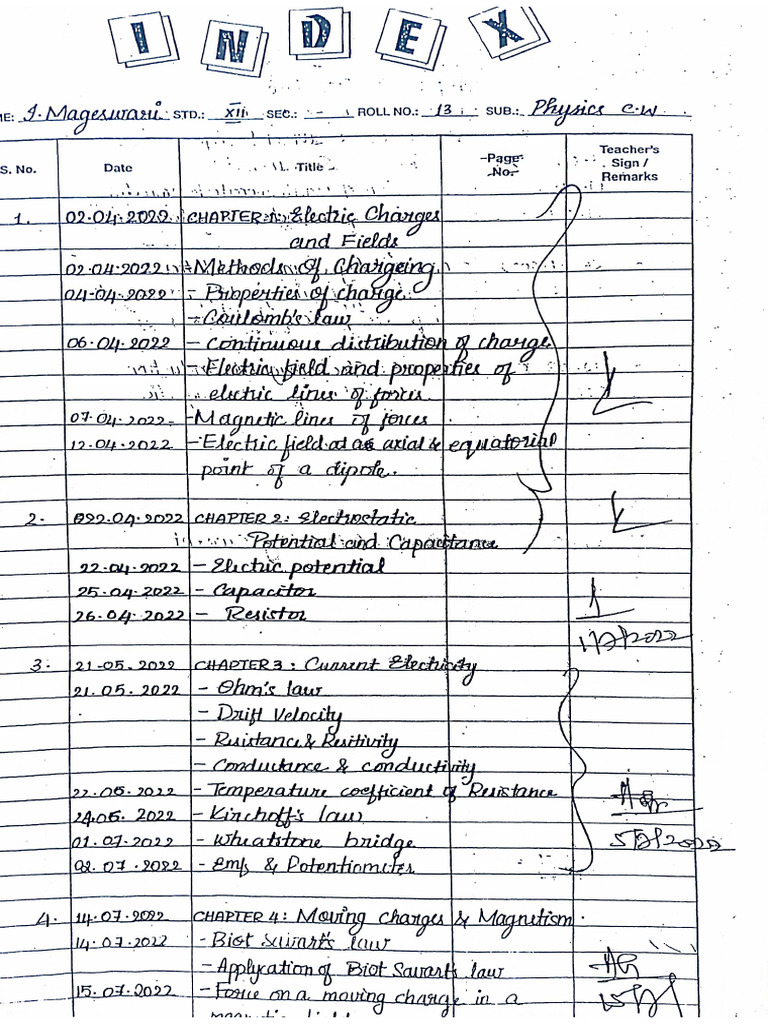 INDEX
ME: J. Mageswari STD.: XII SEC.: - ROLL NO.: 13 SUB.: Physics C.W
S. No. Date Title Page No. Teacher's Sign / Remarks
1. 02.04.2022 CHAPTER 1: Electric Charges
and Fields
02.04.2022 - Methods of Chargeing
04-04.2022 - Properties of charge
- Coulomb's law
06.04.2022 - Continuous distribution of charge
- Electric field and properties of
electric lines of forces
07.04.2022 - Magnetic lines of forces
12.04.2022 - Electric field at as axial & equatorial
point of a dipole.
2. 22.04.2022 CHAPTER 2: Electrostatic
Potential and Capacitance
22.04.2022 - Electric potential
25.04.2022 - Capacitor
26.04.2022 - Resistor
3. 21-05.2022 CHAPTER 3: Current Electricity
21.05.2022 - Ohm's law
- Drift Velocity
- Resistance & Resitivity
- Conductance & conductivity
22.06.2022 - Temperature coefficient of Resistance
24.06.2022 - Kirchoff's law
01.07.2022 - Wheatstone bridge
02.07.2022 - Emf & Potentiometer
4. 14.07.2022 CHAPTER 4: Moving charges & Magnetism.
14.07.2022 - Biot Savart's law
- Application of Biot Savart's law
15.07.2022 - Force on a moving charge in a
magnetic field